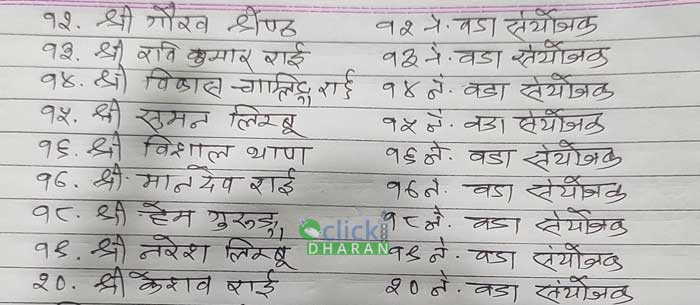 १२. श्री गौरव श्रेष्ठ १२ नं. वडा संयोजक
१३. श्री रवि कुमार राई १३ नं. वडा संयोजक
१४. श्री विकास चाम्लिङ्ग राई १४ नं. वडा संयोजक
१५. श्री सुमन लिम्बू १५ नं. वडा संयोजक
१६. श्री विशाल थापा १६ नं. वडा संयोजक
१७. श्री मानदेव राई १७ नं. वडा संयोजक
१८. श्री हेम गुरुङ्ग १८ नं. वडा संयोजक
click
DHARAN
१९. श्री नरेश लिम्बू १९ नं. वडा संयोजक
२०. श्री केशव राई २० नं. वडा संयोजक